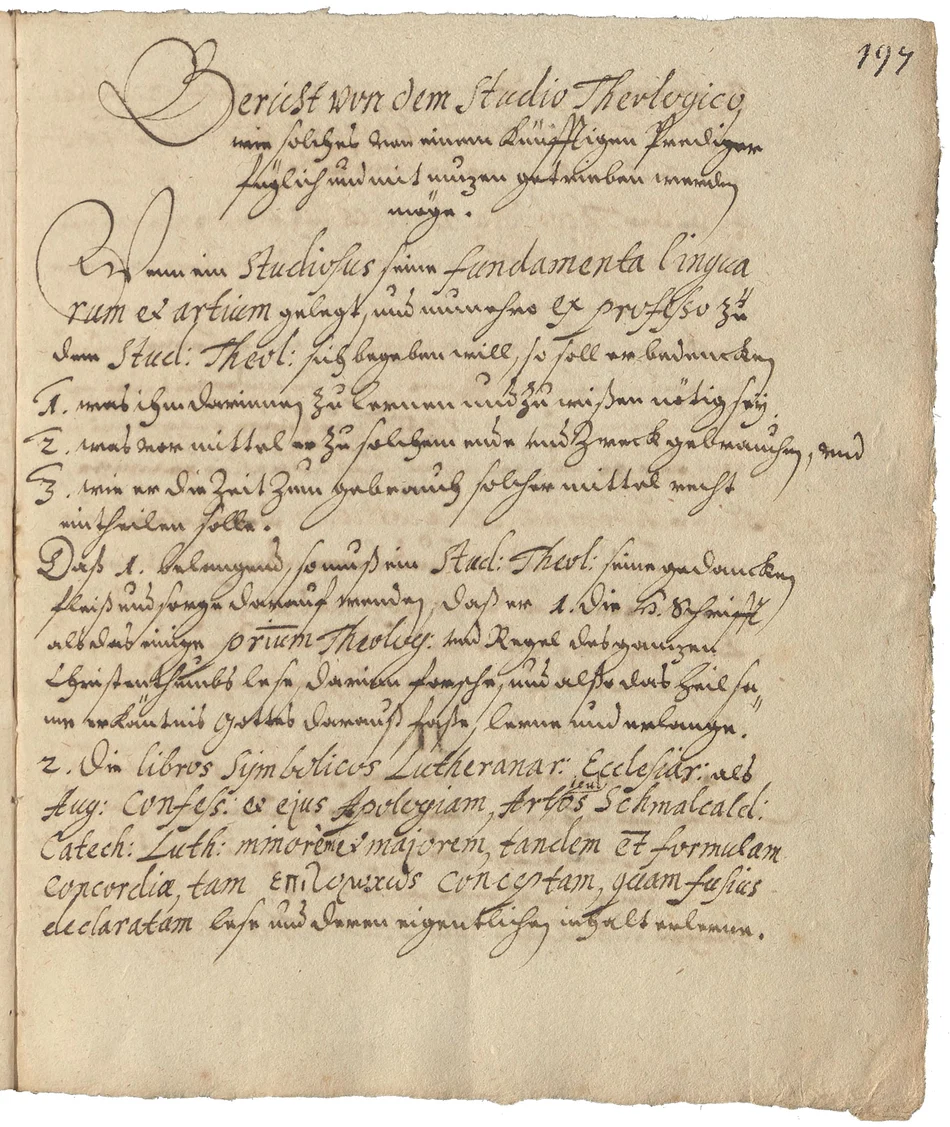 197
Bericht von dem Studio Theologico,
wie solches von einem künfftigen Prediger
füglich und mit nuzen getrieben werden
möge.
Wenn ein Studiosus seine fundamenta lingva
rum et artium gelegt, und nunmehro ex professo zu
dem Stud: Theol: sich begeben will, so soll er bedencken
1. was ihm darinnen zu lernen und zu wißen nötig sey,
2. was vor mittel er zu solchem ende und Zweck gebrauchen, und
3. wie er die Zeit zum gebrauch solcher mittel recht
eintheilen solle.
Daß 1. belangend, so muß ein Stud: Theol: seine gedancken
fleiß und sorge darauf wenden, daß er 1. die H. Schrifft
als das einige prium Theolog: und Regel des ganzen
Christenthumbs lese, darinn forsche, und also das heil sa„
me erkäntnis Gottes darauß faße, lerne und erlange.
2. Die libros Symbolicos Lutheranar: Ecclesiar: als
Aug: Confess: et ejus Apologiam, Artos Schmalcald:
Catech: Luth: minorem et majorem, tandem et formulam
Concordiæ, tam ἐπιτομικῶς conceptam, quam fusius
declaratam lese und deren eigentlichen inhalt erlerne.